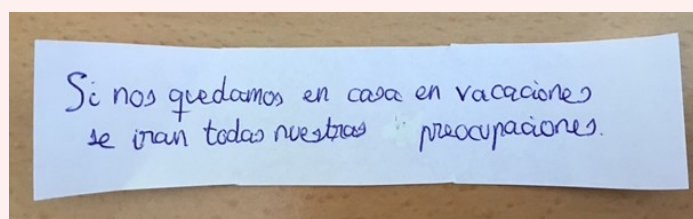 Si nos quedamos en casa en vacaciones
se iran todas nuestras preocupaciones.